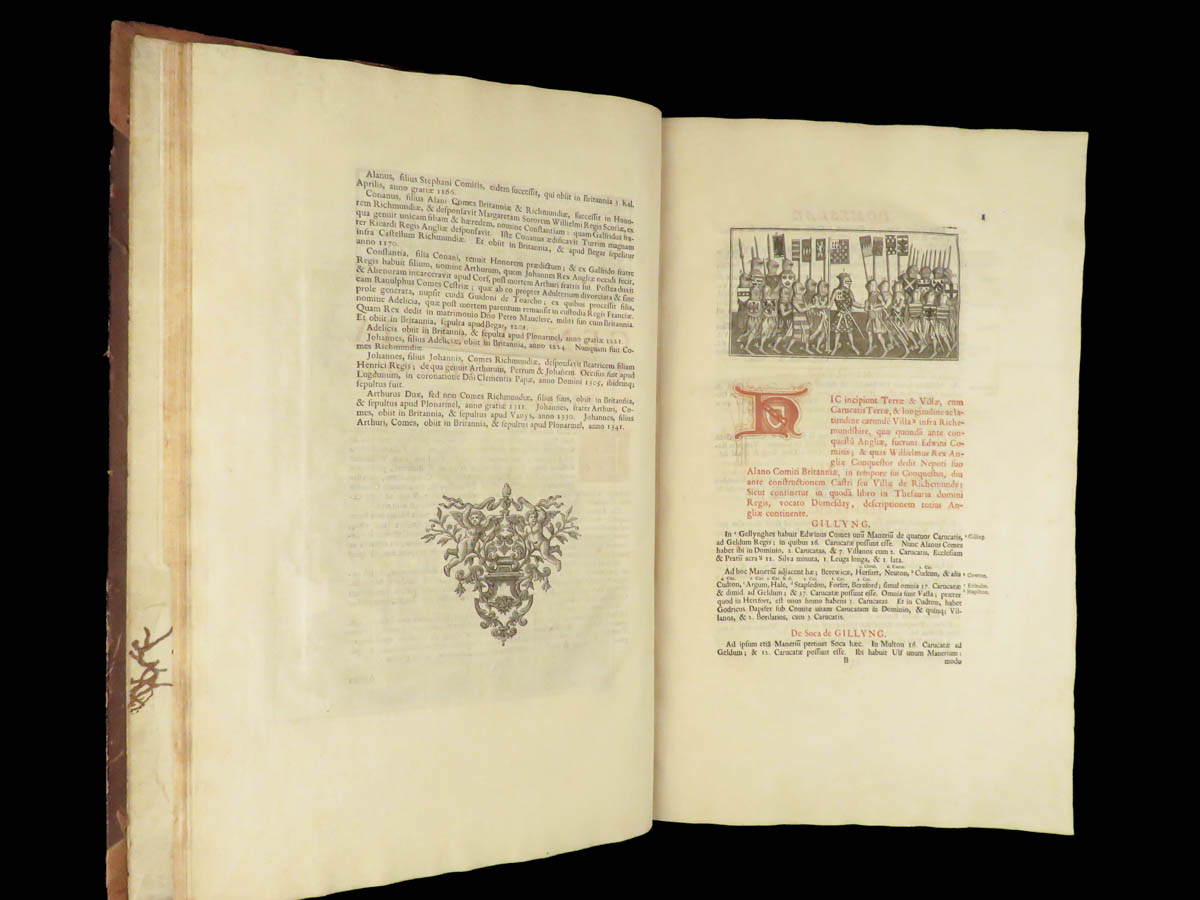 Alanus, filius Stephani Comitis, eidem successit, qui obiit in Britannia 3. Kal.
Aprilis, anno gratiæ 1166.
Conanus, filius Alani Comes Britanniæ & Richmundiæ, successit in Hono-
rem Richmundiæ, & desponsavit Margaretam Sororem Willielmi Regis Scotiæ, ex
qua genuit unicam filiam & hæredem, nomine Constantiam: quam Galfridus fra-
ter Ricardi Regis Angliæ desponsavit. Iste Conanus ædificavit Turrim magnam
infra Castellum Richmundiæ. Et obiit in Britannia, & apud Begar sepelitur
anno 1170.
Constantia, filia Conani, tenuit Honorem prædictum; & ex Galfrido fratre
Regis habuit filium, nomine Arthurum, quem Johannes Rex Angliæ occidi fecit,
& Alienoram incarceravit apud Corf, post mortem Arthuri fratris sui. Postea duxit
eam Ranulphus Comes Cestriæ; quæ ab eo propter Adulterium divorciata & sine
prole generata, nupsit cuidā Guidoni de Toarcho; ex quibus processit filia,
nomine Adelicia, quæ post mortem parentum remansit in custodia Regis Franciæ.
Quam Rex dedit in matrimonio Dño Petro Mauclere, militi suo cum Britannia.
Et obiit in Britannia, sepulta apud Begar, 1201.
Adelicia obiit in Britannia, & sepulta apud Plonarmel, anno gratiæ 1221.
Johannes, filius Adeliciæ, obiit in Britannia, anno 1224. Nunquam fuit Co-
mes Richmundiæ.
Johannes, filius Johannis, Comes Richmundiæ, desponsavit Beatricem filiam
Henrici Regis; de qua genuit Arthurum, Petrum & Johañem. Occisus fuit apud
Lugdunum, in coronatione Dñi Clementis Papæ, anno Domini 1305, ibidemq;
sepultus fuit.
Arthurus Dux, sed non Comes Richmundiæ, filius suus, obiit in Britannia,
& sepultus apud Plonarmel, anno gratiæ 1311. Johannes, frater Arthuri, Co-
mes, obiit in Britannia, & sepultus apud Vanys, anno 1330. Johannes, filius
Arthuri, Comes, obiit in Britannia, & sepultus apud Plonarmel, anno 1341.
1
HIC incipiunt Terræ & Villæ, cum
Carucatis Terræ, & longitudine ac la-
titudine earundē Villaꝝ infra Riche-
mundshire, quæ quondā ante con-
questū Angliæ, fuerunt Edwini Co-
mitis; & quas Willielmus Rex An-
gliæ Conquestor dedit Nepoti suo
Alano Comiti Britanniæ, in tempore sui Conquestus, diu
ante constructionem Castri seu Villæ de Richemunde;
Sicut continetur in quodā libro in Thesauria domini
Regis, vocato Domesday, descriptionem totius An-
gliæ continente.
GILLYNG,
In Gellynghes habuit Edwinus Comes unū Maneriū de quatuor Carucatis,
ad Geldum Regis; in quibus 16. Carucatæ possunt esse. Nunc Alanus Comes
haber ibi in Dominio, 2. Carucatas, & 7. Villanos cum 2. Carucatis, Ecclesiam
& Pratū acraꝝ 12. Silva minuta, 1. Leuga longa, & 1. lata.
Ad hoc Manerium adjacent hæ; Berewicæ, Herfurt, Neuton, Cudton, & alia
Cudton, Argum, Hale, Stapledon, Forset, Bereford; simul omnia 37. Carucatæ
& dimid. ad Geldum; & 37. Carucatæ possunt esse. Omnia sunt Vasta; præter
quod in Hertfort, est unus homo habens 3. Carucatas. Et in Cudton, habet
Godricus Dapifer sub Comite unam Carucatam in Dominio, & quinq; Vil-
lanos, & 2. Bordarios, cum 3. Carucatis.
De Soca de GILLYNG.
Ad ipsum etiā Maneriū pertinet Soca hæc. In Multon 16. Carucatæ ad
Geldum; & 12. Carucatæ possunt esse. Ibi habuit Ulf unum Manerium:
B modo